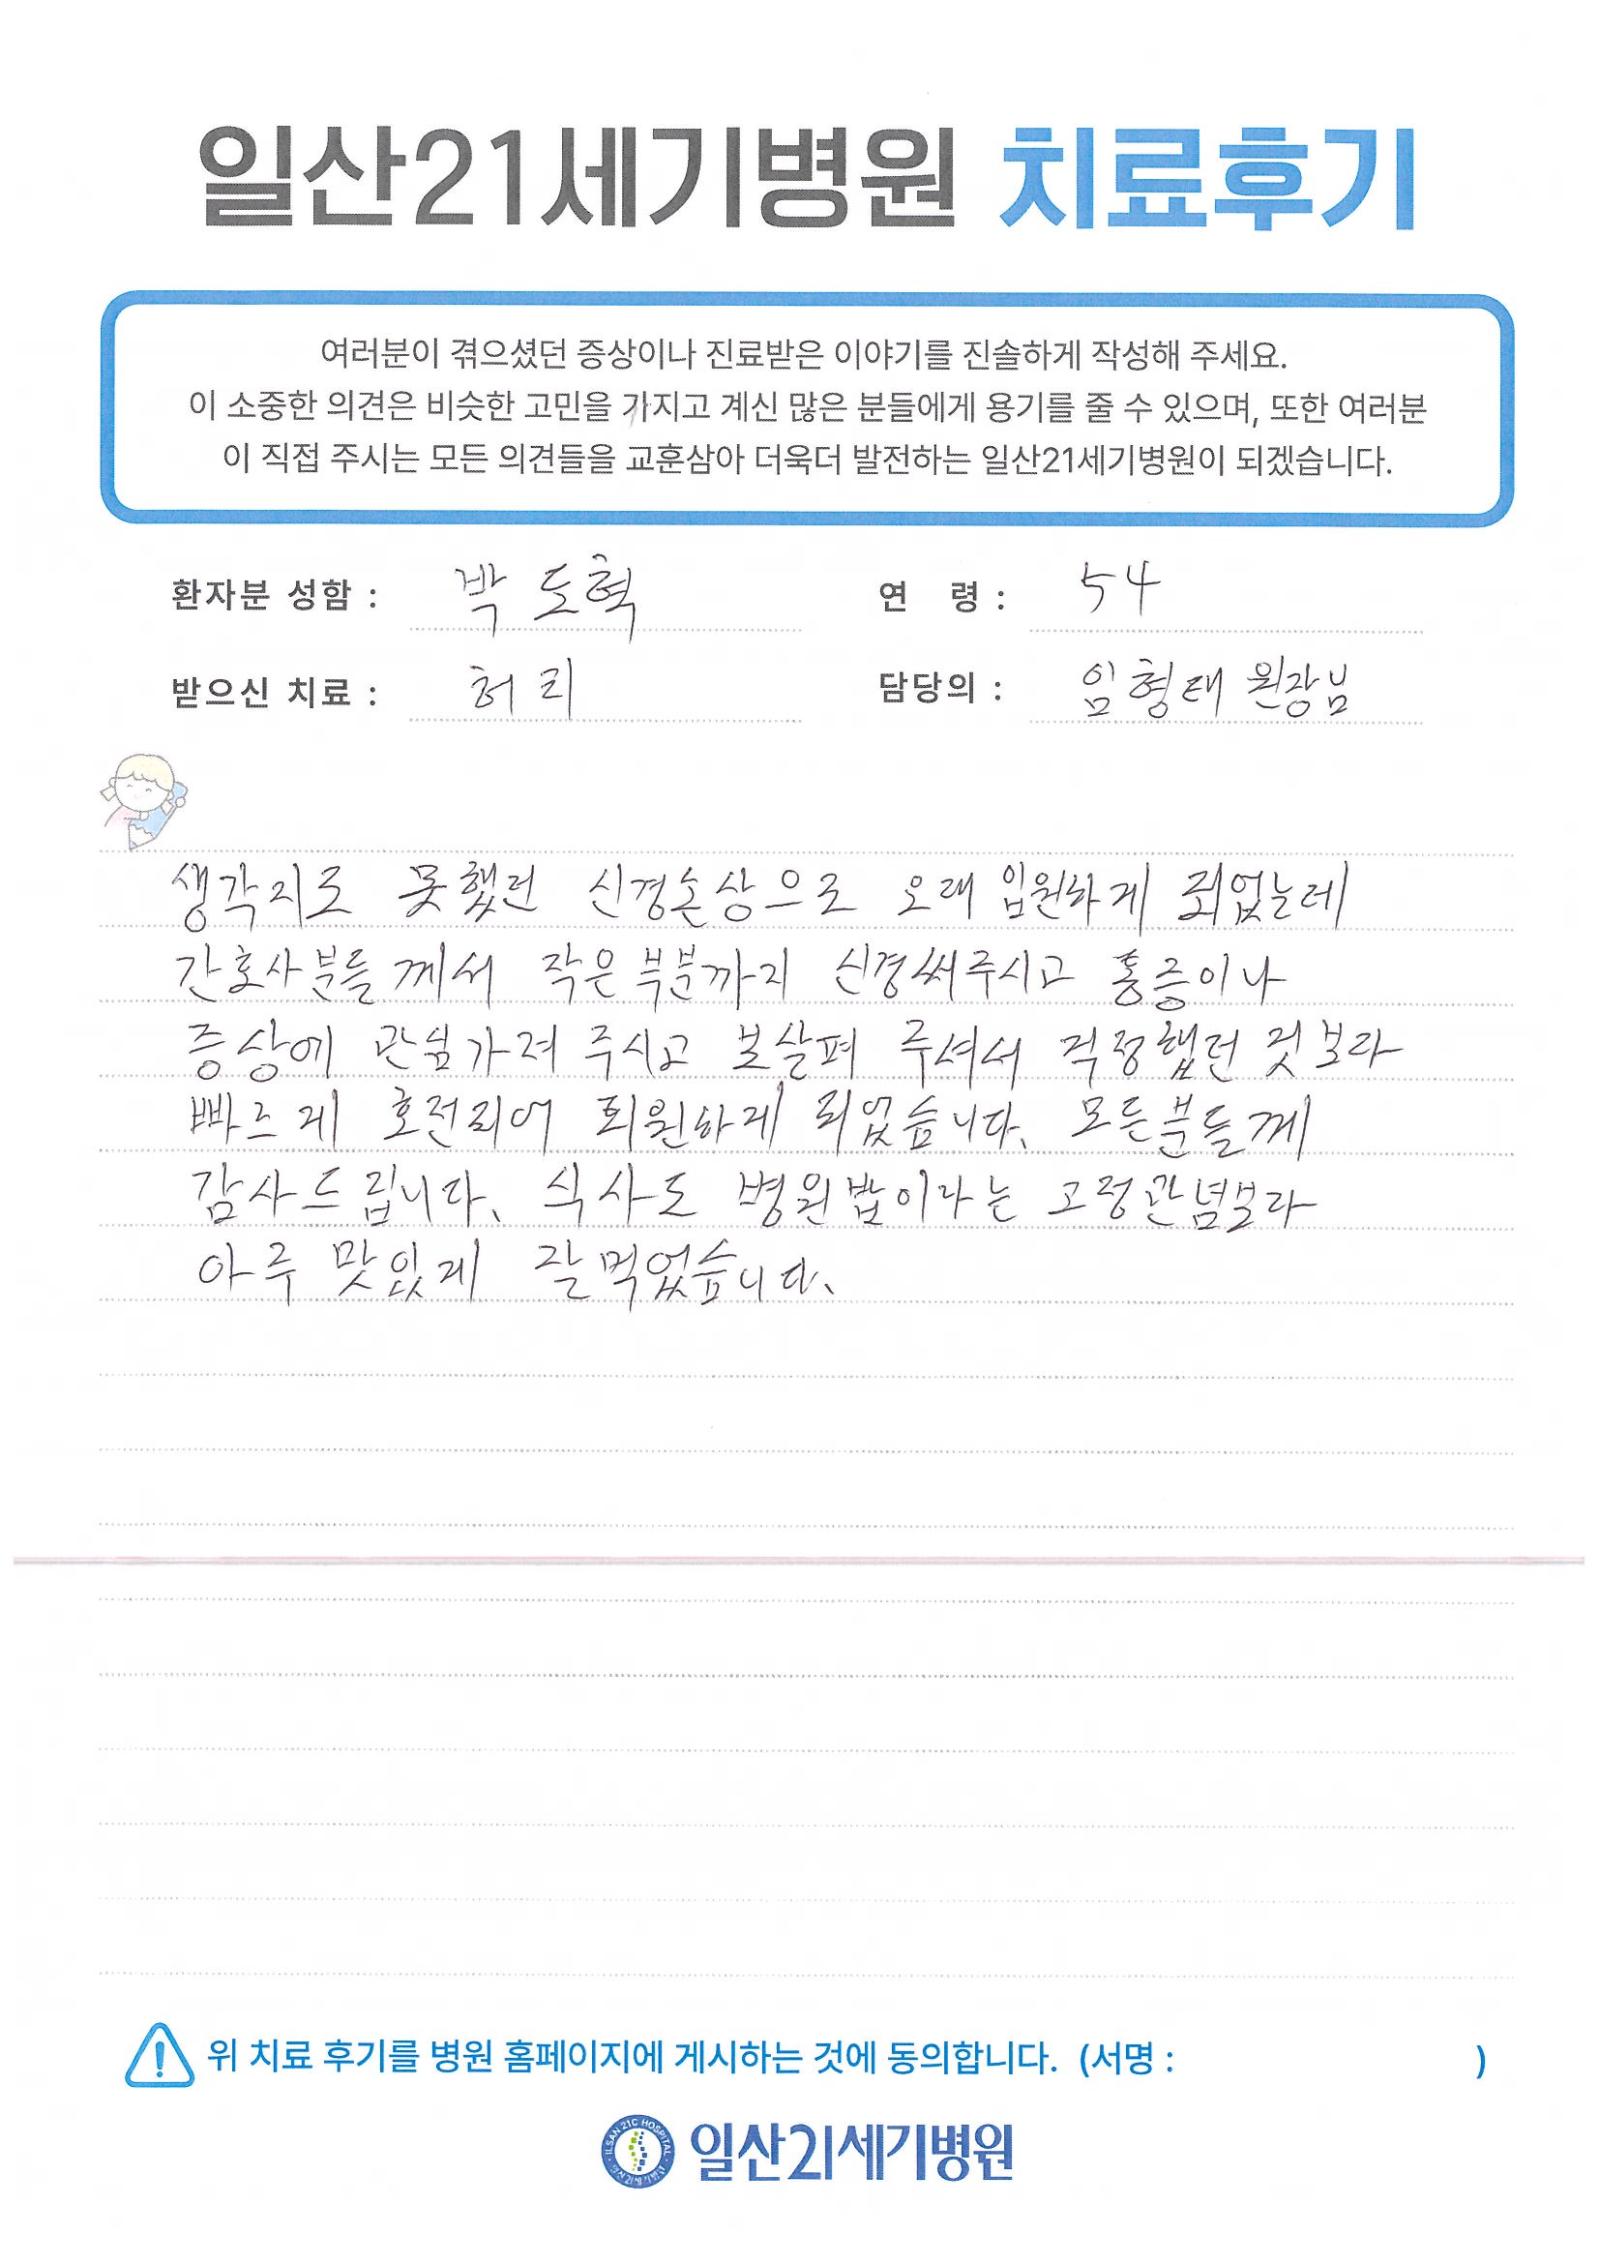 일산21세기병원 치료후기
여러분이 겪으셨던 증상이나 진료받은 이야기를 진솔하게 작성해 주세요.
이 소중한 의견은 비슷한 고민을 가지고 계신 많은 분들에게 용기를 줄 수 있으며, 또한 여러분
이 직접 주시는 모든 의견들을 교훈삼아 더욱더 발전하는 일산21세기병원이 되겠습니다.
환자분 성함 : 박 도혁 연 령 : 54
받으신 치료 : 허리 담당의 : 임형태 원장님
생각지도 못했던 신경손상으로 오래 입원하게 되었는데
간호사분들께서 작은부분까지 신경써주시고 통증이나
증상에 관심가져 주시고 보살펴 주셔서 걱정했던 것보라
빠르게 호전되어 퇴원하게 되었습니다. 모든분들께
감사드립니다. 식사도 병원밥이라는 고정관념보라
아주 맛있게 잘먹었습니다.
위 치료 후기를 병원 홈페이지에 게시하는 것에 동의합니다. (서명 : )
ILSAN 21C HOSPITAL
일산21세기병원
일산21세기병원